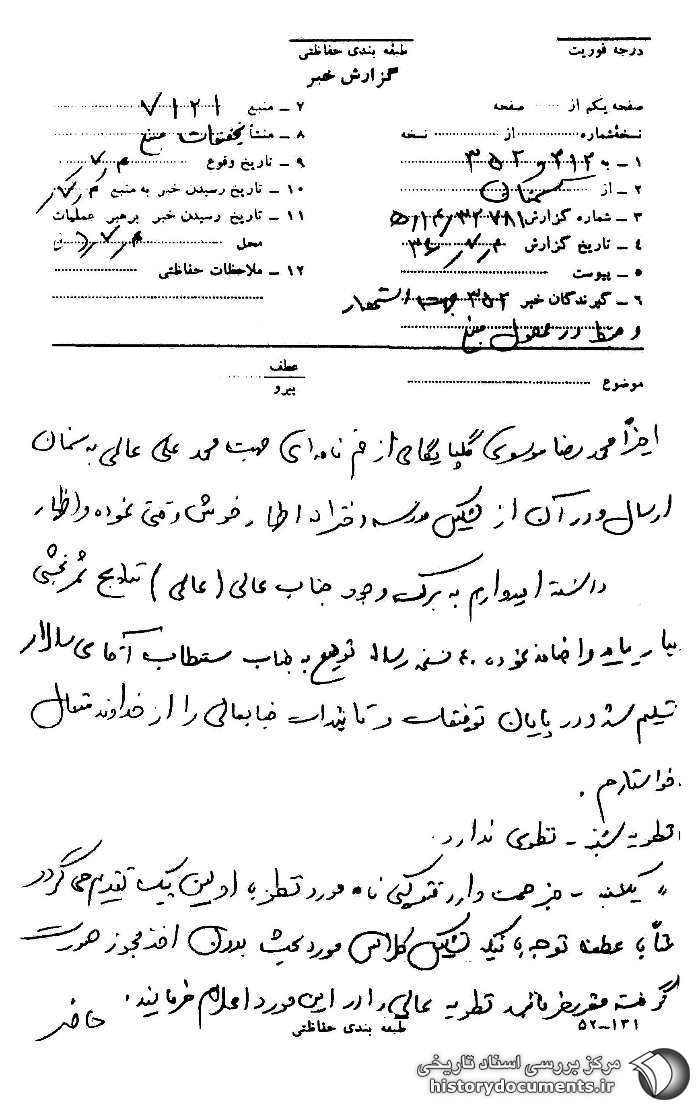 درجه فوریت
طبقه بندی حفاظتی
گزارش خبر
صفحه یکم از ...... صفحه
نسخهٔ شماره .......... از .......... نسخه
۱ ـ به ۳۱۲ و ۳۵۲
۲ ـ از سمنان
۳ ـ شماره گزارش
۴ ـ تاریخ گزارش
۵ ـ پیوست
۶ ـ گیرندگان خبر ۳۵۲ جهت استحضار
و ضبط در محل منبع
۷ ـ منبع ۷۱۲۱
۸ ـ منشأ تحقیقات منبع
۹ ـ تاریخ وقوع
۱۰ ـ تاریخ رسیدن خبر به منبع
۱۱ ـ تاریخ رسیدن خبر برهبر عملیات
محل
۱۲ ـ ملاحظات حفاظتی
موضوع
عطف
پیرو
اخیراً محمد رضا موسوی گلپایگانی از قم نامه‌ای جهت محمد علی عالمی به سمنان
ارسال و در آن از تشکیل مدرسه دخترانه اظهار خوش وقتی نموده و اظهار
داشته امیدواریم به برکت وجود جناب عالی (عالمی) نتایج ثمربخشی
ببار بیاید و اضافه نموده ۴۰ نسخه رساله توضیح به جناب مستطاب آقای سالار
تسلیم شد و در پایان توفیقات و تائیدات جنابعالی را از خداوند متعال
خواستارم .
نظریه شنبه ـ نظری ندارد .
" یکشنبه ـ خبر صحت دارد فتوکپی نامه مورد نظر با اولین پیک تقدیم می گردد
ضمناً با عطف توجه باینکه تشکیل کلاس مورد بحث بدون اخذ مجوز صورت
گرفته مقرر فرمائید نظریه عالی را در این مورد اعلام فرمایند .
طبقه بندی حفاظتی
۵۲-۱۳۱
مرکز بررسی اسناد تاریخی
historydocuments.ir